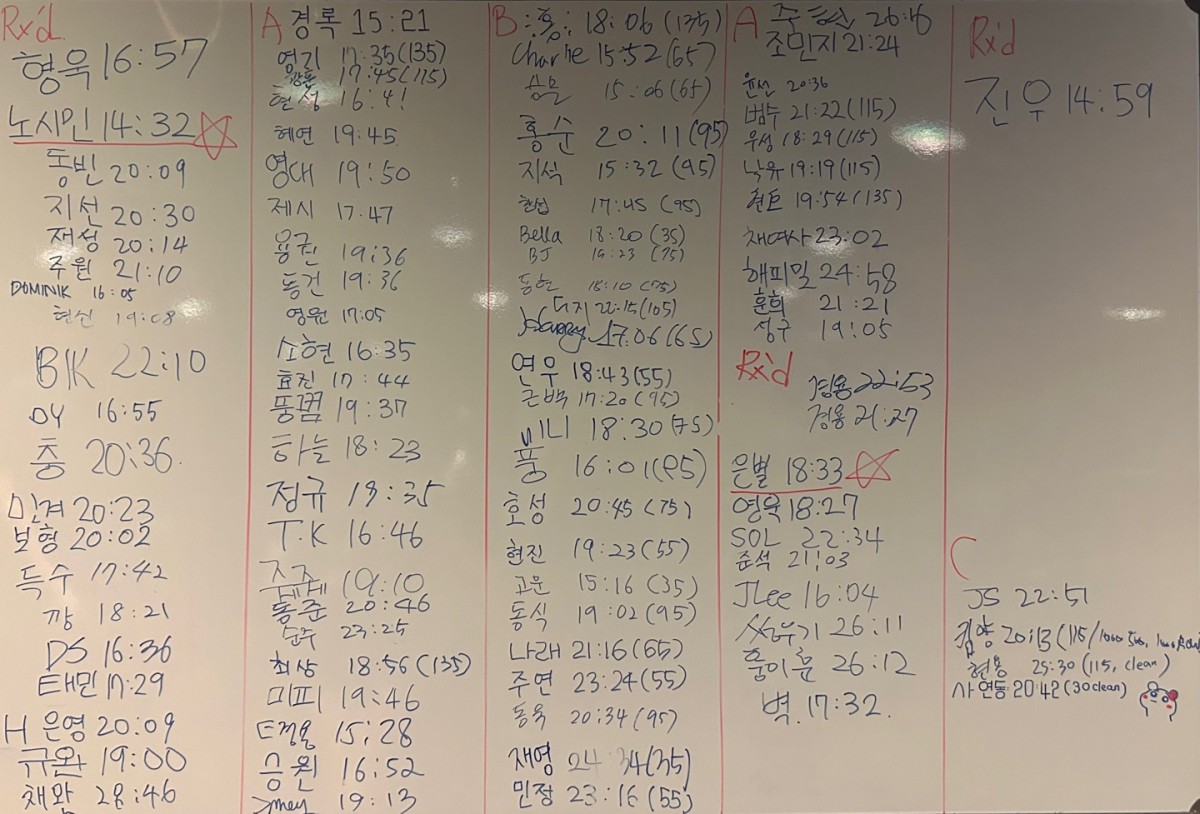 Rx'd
형욱 16:57
노시민 14:32
동빈 20:09
지선 20:30
재성 20:14
주원 21:10
DOMINIK 16:05
현신 19:08
BK 22:10
DY 16:55
충 20:36
민겨 20:23
보형 20:02
득수 17:42
깡 18:21
DS 16:36
태민 17:29
H 은영 20:09
규완 19:00
채왕 28:46
A 경록 15:21
영기 17:35(135)
17:45(115)
현성 16:41
혜연 19:45
영대 19:50
제시 17:47
용권 19:36
동건 19:36
영원 17:05
소현 16:35
효진 17:44
풍껌 19:37
하늘 18:23
정규 18:35
T.K 16:46
19:10
동준 20:46
순주 23:25
최상 18:56(135)
미피 19:46
15:28
승원 16:52
19:13
B 18:06(135)
Charlie 15:52(65)
승모 15:06(65)
홍순 20:11(95)
지석 15:32(95)
현섭 17:45(95)
Bella 18:20(35)
BJ 19:23(75)
동현 18:10(75)
더지 22:15(105)
Harry 17:06(65)
연우 18:43(55)
근백 17:20(95)
미니 18:30(75)
풍 16:01(95)
호성 20:45(75)
현진 19:23(55)
고운 15:16(35)
동식 19:02(95)
나래 21:16(65)
주연 23:24(55)
동욱 20:34(95)
재영 24:34(35)
민정 23:16(55)
A
조민지 21:24
윤선 20:36
범수 21:22(115)
우성 18:29(115)
낙유 19:19(115)
현도 19:54(135)
채여사 23:02
해피밀 24:58
훈희 21:21
성구 19:05
Rx'd
경용 22:53
정용 21:27
은별 18:33
영욱 18:27
SOL 22:34
준석 21:03
JLee 16:04
싸우기 26:11
훙이훙 26:12
벽 17:32
Rx'd
진우 14:59
C
JS 22:51
김양 20:13 (115/
현용 25:30 (115, clean)
사연동 20:42 (30 clean)